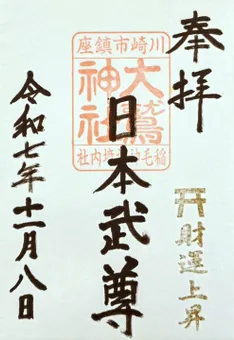 奉拝
財運上昇
川崎市鎮座
大鷲神社
稲毛神社境内社
日本武尊
令和七年十一月八日